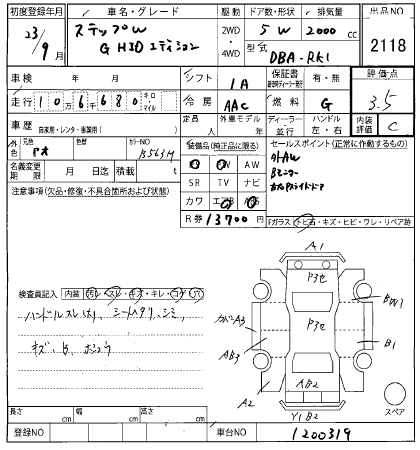 初度登録年月 車名・グレード 駆動 ドア数・形状 排気量 出品NO
23/9月 ステップW 2WD・4WD 5 W 2000 cc 2118
G HID エディション 型式 DBA-RK1
車検 年 月 シフト IA 保証書 有・無 評価点
走行 106680 キロ・マイル 冷房 AAC 燃料 G 3.5
車歴 自家用・レンタ・事業用( ) 定員 人 外車モデル 年 ディーラー 並行 ハンドル 左・右 内装評価 C
外色 元色 色替 カラーNO B563M
装備品(純正品に限る) セールスポイント(正常に作動するもの)
名義変更期限 月 日迄 積載 t
PS PW AW
SR TV ナビ
カワ エアB ABS
R券 13700 円
注意事項(欠品・修復・不具合箇所および状態)
Fガラス トビ石・キズ・ヒビ・ワレ・リペア跡
検査員記入 内装 汚レ・スレ・キズ・キレ・コゲ・穴
ハンドルスレ シートヘタリ、シミ
A1
P3セ
P3セ
カバーA3
AB3
A2
AB2
Y1B2
BW1
B1
スペア
長さ cm 幅 cm 高さ cm
登録NO 車台NO 1200319